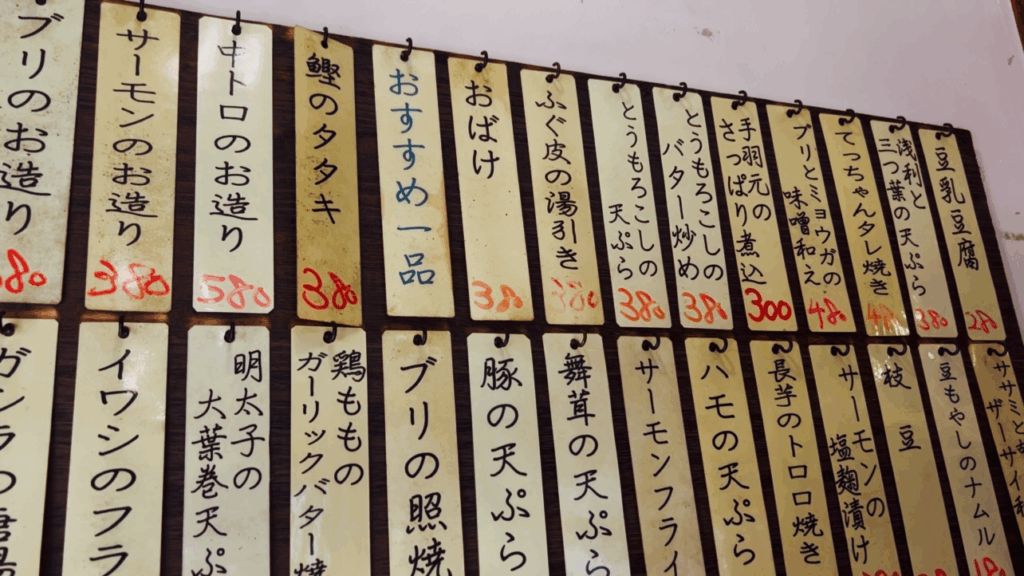 豆乳豆腐
280
浅利と
三つ葉の天ぷら
380
てっちゃんタレ焼き
480
ブリとミョウガの
味噌和え
480
手羽元の
さっぱり煮込
300
とうもろこしの
バター炒め
380
とうもろこしの
天ぷら
380
ふぐ皮の湯引き
380
おばけ
380
おすすめ一品
鰹のタタキ
380
中トロのお造り
580
サーモンのお造り
380
ブリのお造り
380
ササミと
ザーサイ和
豆もやしのナムル
180
枝豆
サーモンの
塩麹漬け
長芋のトロロ焼き
ハモの天ぷら
サーモンフライ
舞茸の天ぷら
豚の天ぷら
ブリの照焼
鶏ももの
ガーリックバター焼
明太子の
大葉巻天ぷ
イワシのフラ